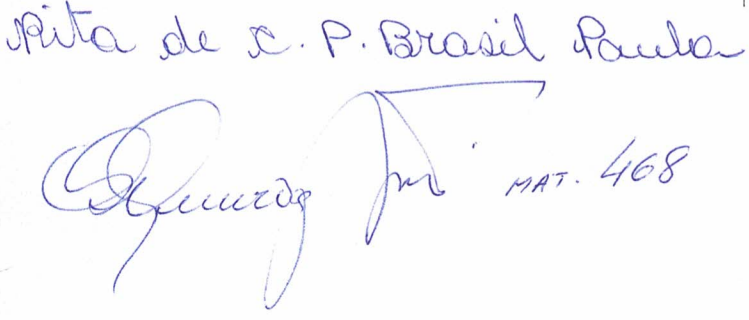 Rita de C. P. Brasil Paula
MAT. 468